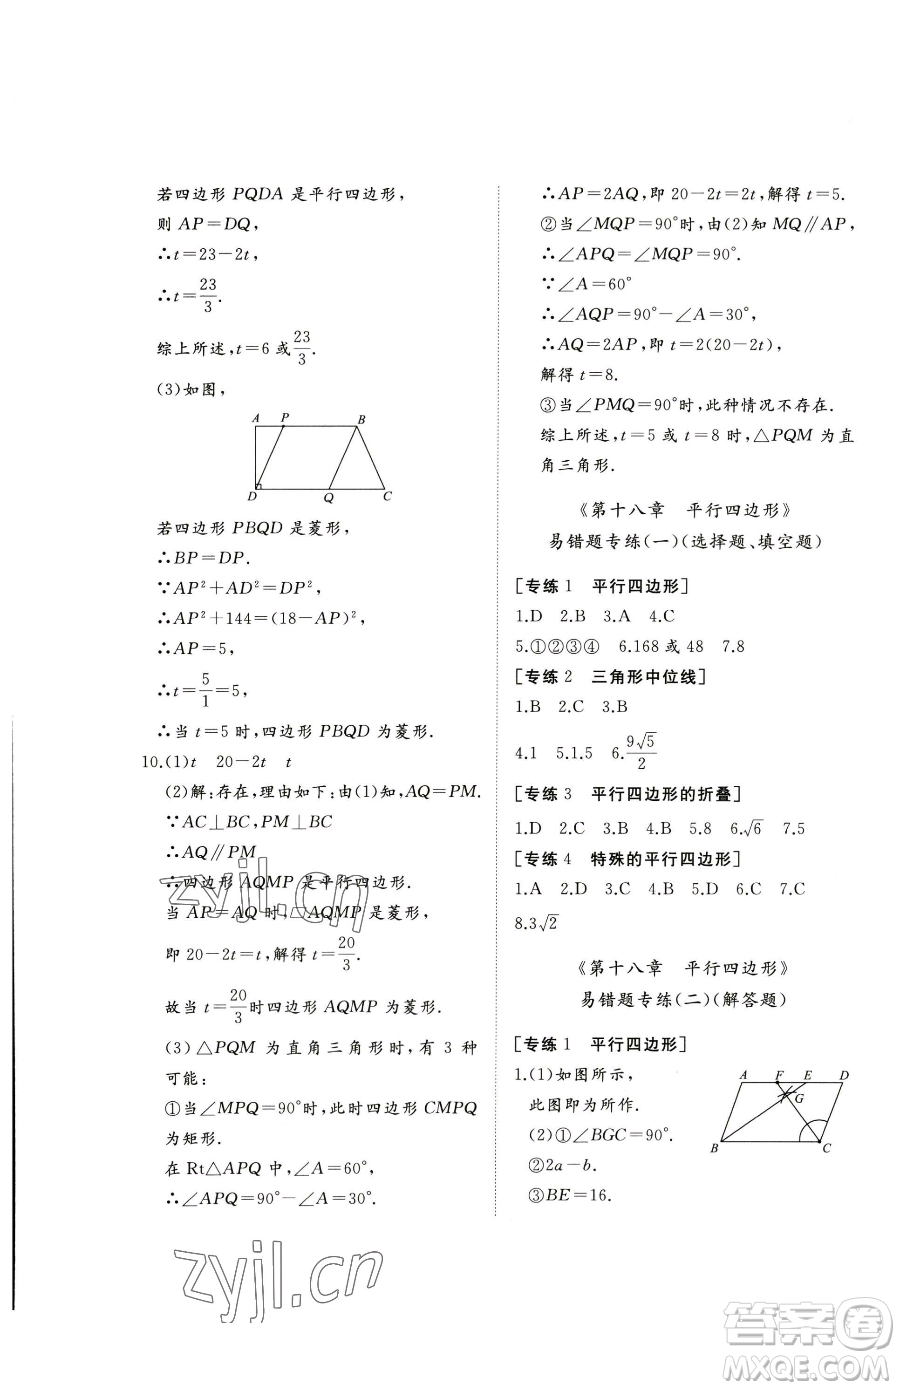 若四边形 PQDA 是平行四边形，
则 AP＝DQ，
∴t＝23－2t，
∴t＝23/3.
综上所述，t＝6 或 23/3.
(3)如图，
A P B
D Q C
若四边形 PBQD 是菱形，
∴BP＝DP.
∵AP²＋AD²＝DP²，
∴AP²＋144＝(18－AP)²，
∴AP＝5，
∴t＝5/1＝5，
∴当 t＝5 时，四边形 PBQD 为菱形.
10.(1)t 20－2t t
(2)解：存在，理由如下：由(1)知，AQ＝PM.
∵AC⊥BC，PM⊥BC
∴AQ∥PM
∴四边形 AQMP 是平行四边形.
当 AP＝AQ 时，▱AQMP 是菱形，
即 20－2t＝t，解得 t＝20/3.
故当 t＝20/3 时四边形 AQMP 为菱形.
(3)△PQM 为直角三角形时，有 3 种
可能：
①当∠MPQ＝90°时，此时四边形 CMPQ
为矩形.
在 Rt△APQ 中，∠A＝60°，
∴∠APQ＝90°－∠A＝30°.
∴AP＝2AQ，即 20－2t＝2t，解得 t＝5.
②当∠MQP＝90°时，由(2)知 MQ∥AP，
∴∠APQ＝∠MQP＝90°.
∵∠A＝60°
∴∠AQP＝90°－∠A＝30°，
∴AQ＝2AP，即 t＝2(20－2t)，
解得 t＝8.
③当∠PMQ＝90°时，此种情况不存在.
综上所述，t＝5 或 t＝8 时，△PQM 为直
角三角形.
《第十八章 平行四边形》
易错题专练(一)(选择题、填空题)
[专练 1 平行四边形]
1.D 2.B 3.A 4.C
5.①②③④ 6.168 或 48 7.8
[专练 2 三角形中位线]
1.B 2.C 3.B
4.1 5.1.5 6.9√5/2
[专练 3 平行四边形的折叠]
1.D 2.C 3.B 4.B 5.8 6.√6 7.5
[专练 4 特殊的平行四边形]
1.A 2.D 3.C 4.B 5.D 6.C 7.C
8.3√2
《第十八章 平行四边形》
易错题专练(二)(解答题)
[专练 1 平行四边形]
1.(1)如图所示，
此图即为所作.
(2)①∠BGC＝90°.
②2a－b.
③BE＝16.
A F E D
G
B C
zyjl.cn
zyjl.cn
答案圈
MXQE.COM